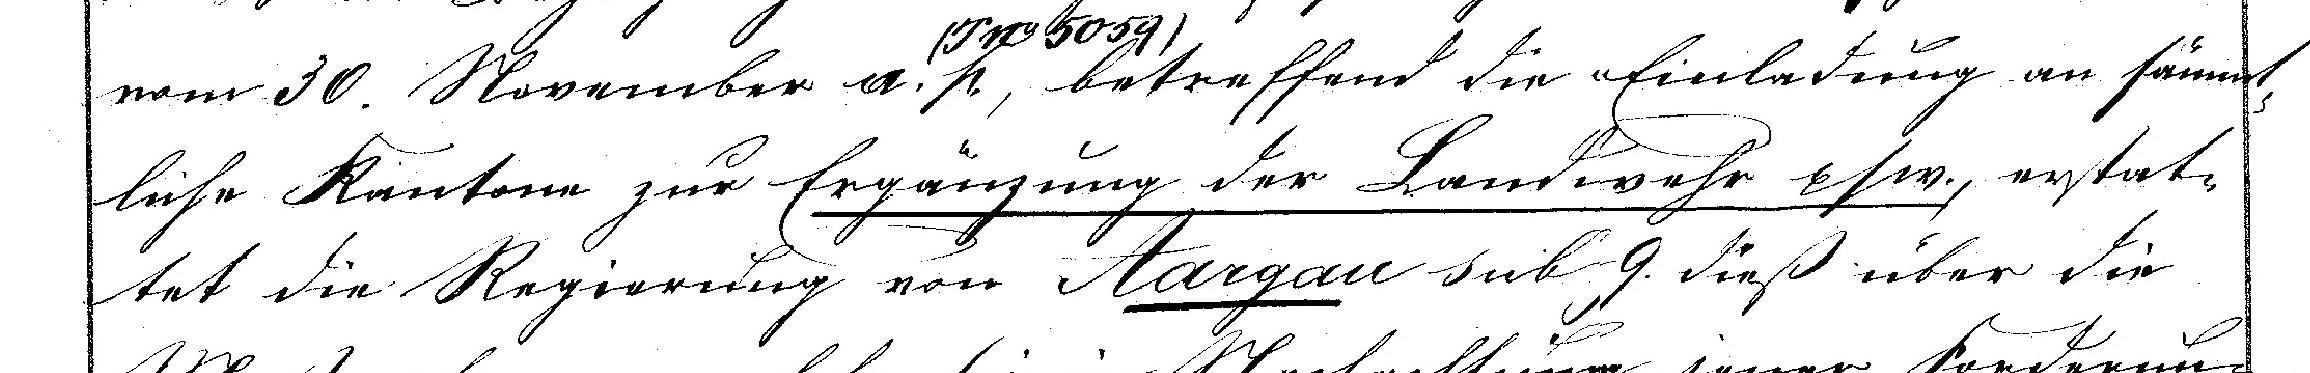 (P. nº 5059)
vom 30. November a. p., betreffend die Einladung an sämmt-
liche Kantone zur Ergänzung der Landwehr psw., erstat-
tet die Regierung von Aargau sub 9. dieß über die